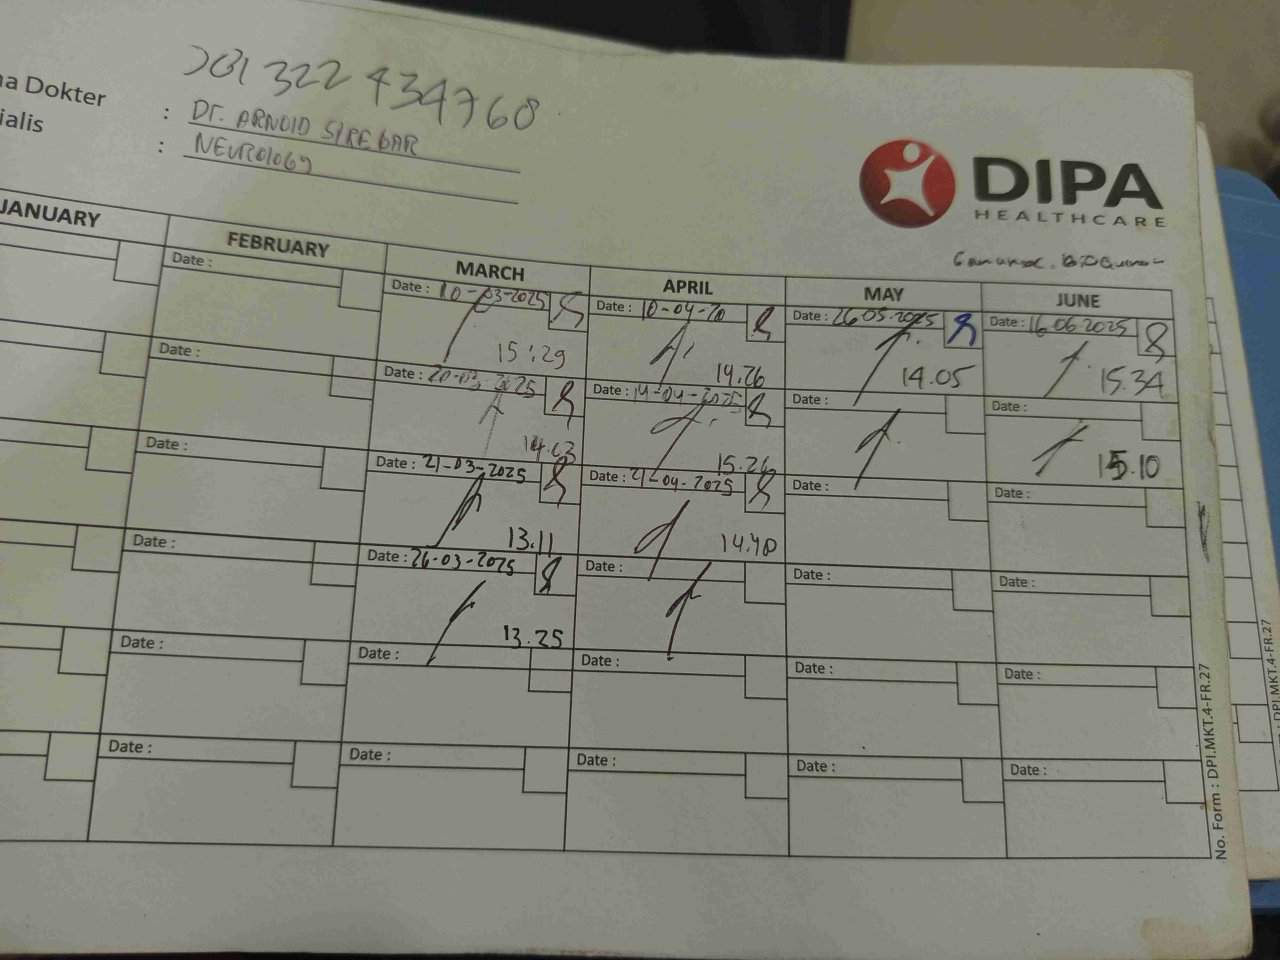 081322434768
na Dokter : Dr. ARNOID SIREGAR
ialis : NEUROlOGY
DIPA
HEALTHCARE
JANUARY FEBRUARY MARCH APRIL MAY JUNE
Date : Date : 10-03-2025 Date : 10-04-20 Date : 26.05.2025 Date : 16.06.2025
15:29 14.26 14.05 15.34
Date : Date : 20-03-2025 Date : 14-04-2025 Date : Date :
14.03 15.26 15.10
Date : Date : 21-03-2025 Date : 21-04-2025 Date : Date :
13.11 14.40
Date : Date : 26-03-2025 Date : Date : Date :
13.25
Date : Date : Date : Date : Date :
Date : Date : Date : Date : Date :
No. Form : DPI.MKT.4-FR.27
DPI.MKT.4-FR.27